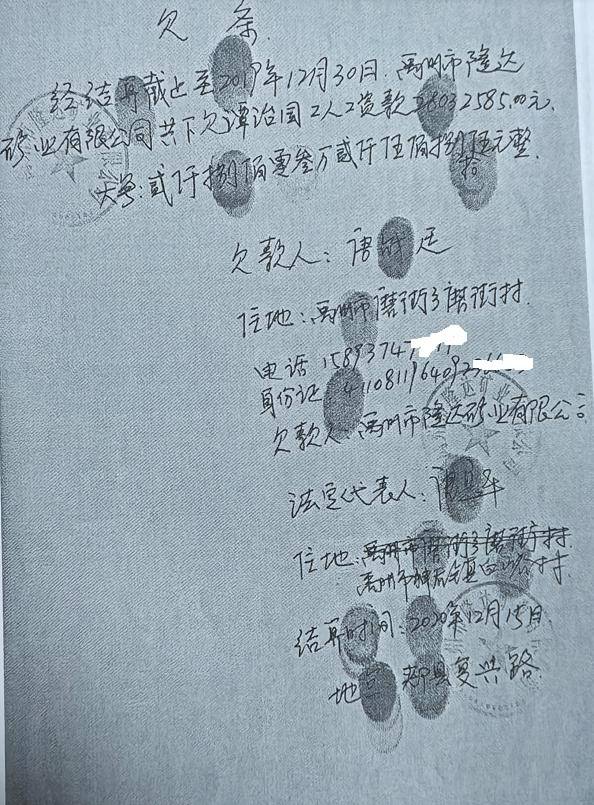 欠条.
经结算截止至2019年12月30日.禹州市隆达
矿业有限公司共下欠谭治国工人工资款28032585.00元.
大写:贰仟捌佰零叁万贰仟伍佰捌拾伍元整.
欠款人:唐 廷
住地:禹州市磨街乡磨街村.
电话 15893747
身份证 411081196409
欠款人:禹州市隆达矿业有限公司
法定代表人:
住地:禹州市磨街乡磨街村
禹州市神垕镇白 村
结算时间:2020年12月15日.
地 郏县复兴路.